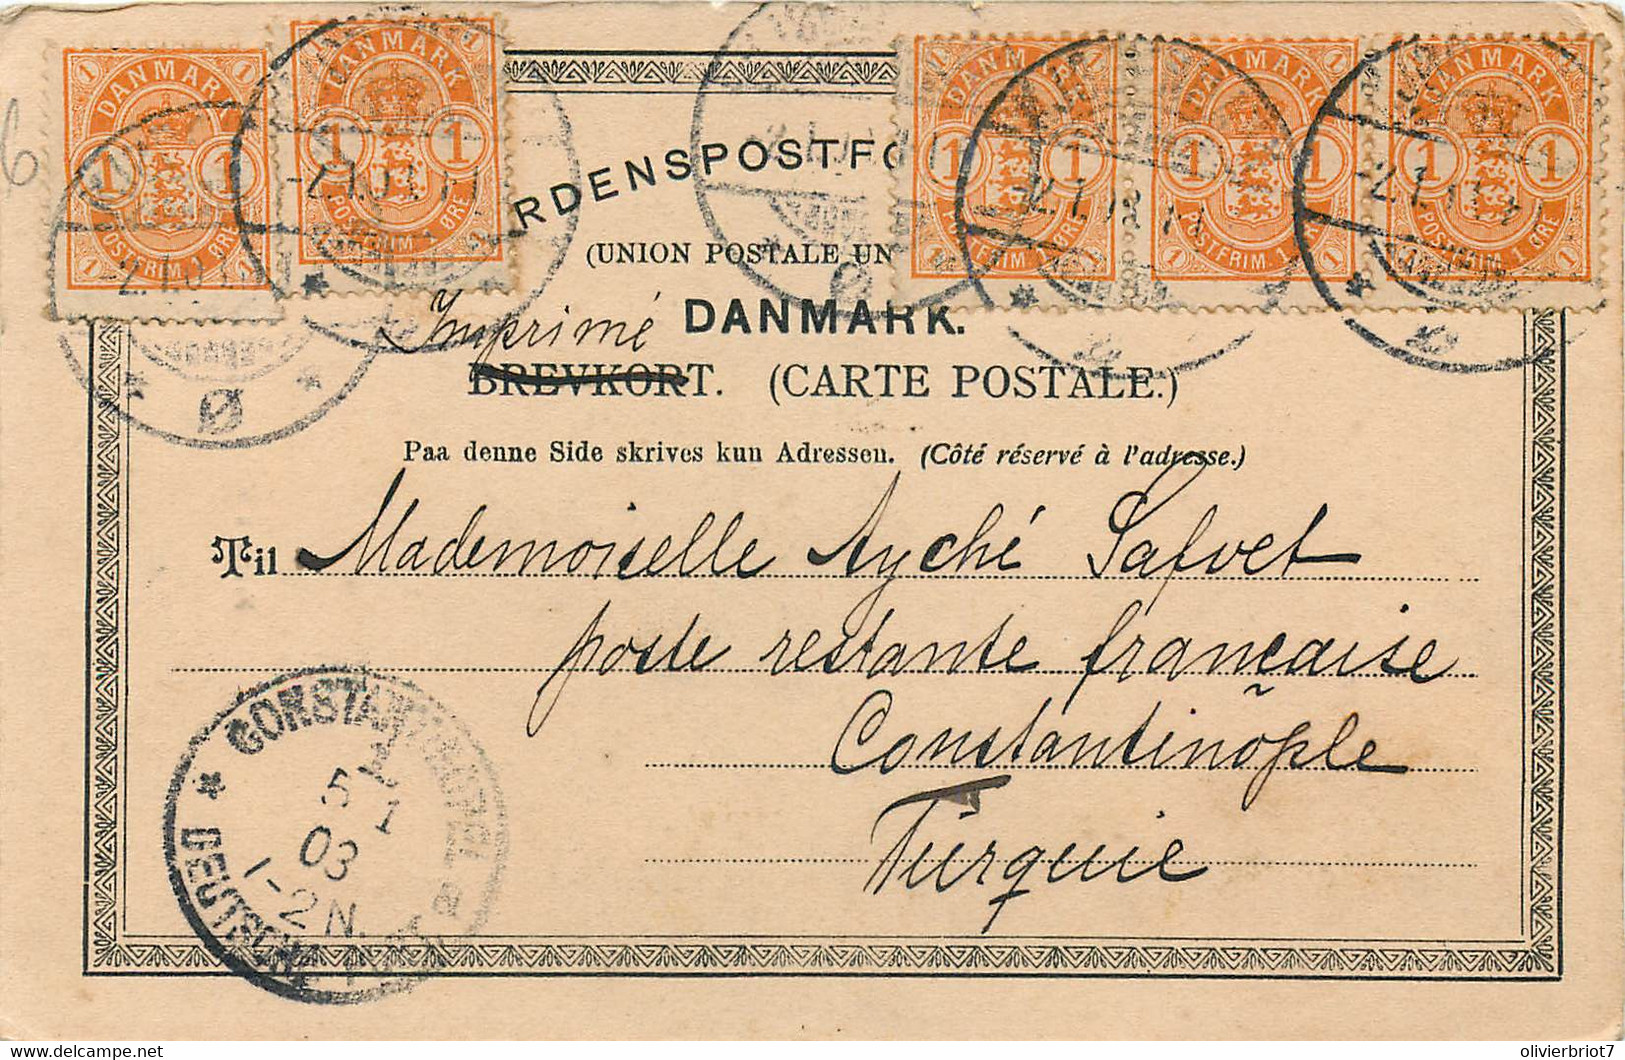 DANMARK
1 1
POSTFRIM. 1 ØRE
DANMARK
1 1
POSTFRIM. 1 ØRE
DANMARK
1 1
POSTFRIM. 1 ØRE
DANMARK
1 1
POSTFRIM. 1
DANMARK
1 1
POSTFRIM. 1 ØRE
6
RDENSPOSTFO
(UNION POSTALE UN
Imprimé DANMARK.
BREVKORT. (CARTE POSTALE.)
Paa denne Side skrives kun Adressen. (Côté réservé à l'adresse.)
Til Mademoiselle Ayché Safvet
poste restante française
Constantinople
Turquie
CONSTANTINOPEL
5 1
03
1-2 N.
DEUTSCHE POST
Ø
olivierbriot7